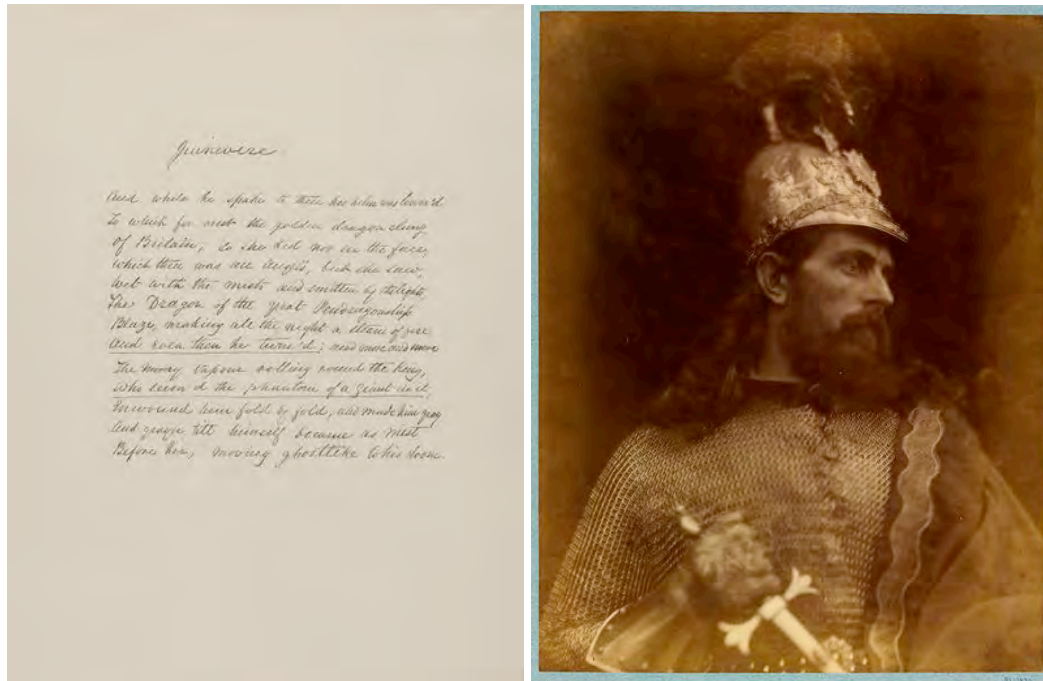 Guinevere
And while he spake to these his helm was lower'd
To which for crest the golden dragon clung
Of Britain; so she did not see the face,
Which then was as an angel's, but she saw,
Wet with the mists and smitten by the lights,
The Dragon of the great Pendragonship
Blaze, making all the night a steam of fire
And even then he turn'd; and more and more
The moony vapour rolling round the King,
Who seem'd the phantom of a giant in it,
Enwound him fold by fold, and made him gray
And grayer, till himself became as mist
Before her, moving ghostlike to his doom.